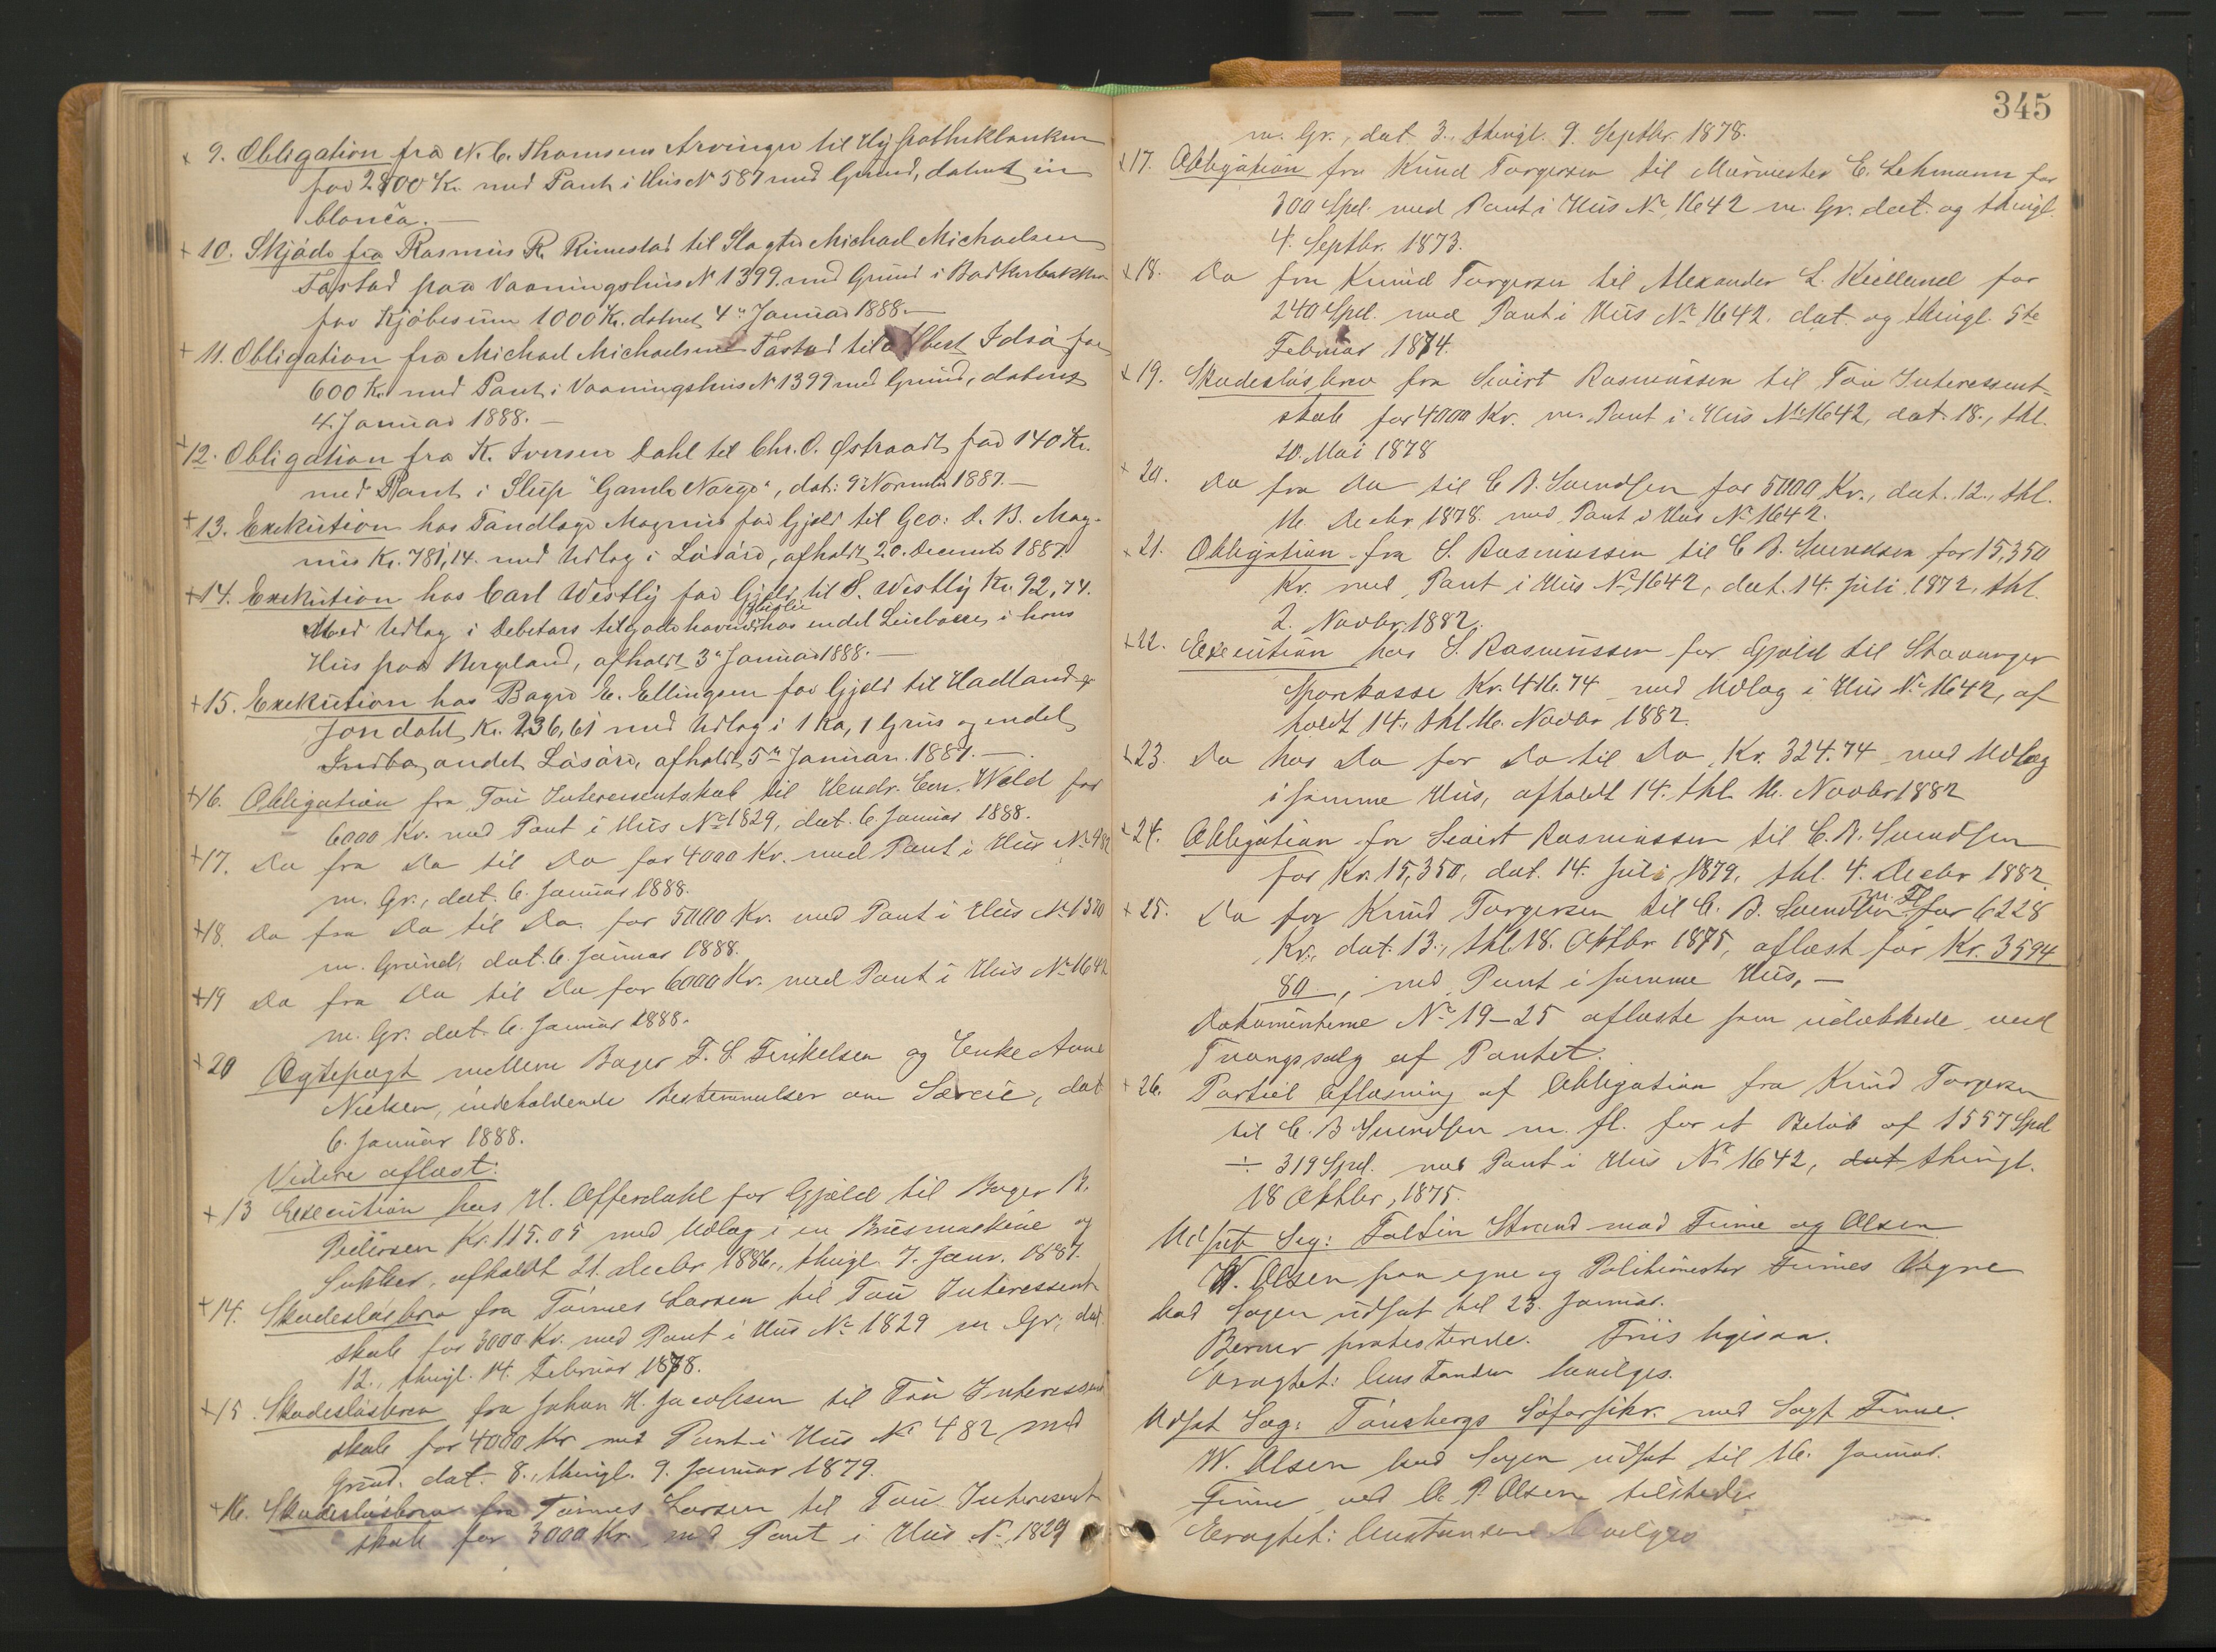 9. Obligation fra N. C. Thomsens Arvinger til Hypothekbanken
for 2400 Kr. med Pant i Hus No 587 med Grund, dateret in
blanca. —
10. Skjøde fra Rasmus R. Rimestad til Slagter Michael Michaelsen
Tastad paa Vaaningshus No 1399 med Grund i Bødkerbakken
for Kjøbesum 1000 Kr. dateret 4de Januar 1888. —
11. Obligation fra Michael Michaelsen Tastad til Albert Idsø for
600 Kr. med Pant i Vaaningshus No 1399 med Grund, dateret
4. Januar 1888. —
12. Obligation fra K. Iversen Dahl til Chr. O. Østraadt for 140 Kr.
med Pant i Slup "Gamle Norge", dat: 9de November 1887. —
13. Exekution hos Tandlæge Magnus for Gjeld til Geo: d. B. Mag-
nus Kr. 781,14. med Udlæg i Løsøre, afholdt 20. December 1887.
14. Exekution hos Carl Westly for Gjeld til S. Westly Kr. 92,74.
Med Udlæg i Debitors tilgodehavende hos endel Leieboere i hans
Hus paa Bergeland, afholdt 3de Januar 1888. —
15. Exekution hos Bager E. Ellingsen for Gjeld til Hadland &
Jondahl Kr. 236,61 med Udlæg i 1 Ko, 1 Gris og endel
Indbo, andet Løsøre, afholdt 5te Januar. 1887. —
16. Obligation fra Tou Interessentskab til Hendr. Em. Wold for
6000 Kr. med Pant i Hus No 1829, dat. 6. Januar 1888.
17. Do fra Do til Do for 4000 Kr. med Pant i Hus No 482
m. Gr., dat. 6. Januar 1888.
18. Do fra Do til Do for 5000 Kr. med Pant i Hus No 1520
m. Grund, dat. 6. Januar 1888.
19 Do fra Do til Do for 6000 Kr. med Pant i Hus No 1642
m. Gr. dat. 6. Januar 1888.
20 Ægtepagt mellem Bager F. S. Finkelsen og Enke Anne
Nielsen, indeholdende Bestemmelser om Særeie, dat
6. Januar 1888.
Videre aflæst:
13 Execution hos H. Offerdahl for Gjæld til Bager B.
Pedersen Kr. 115.05 med Udlæg i en Brusmaskine og
Sukker, afholdt 21. Decbr 1886, thingl. 7. Janr. 1887.
14. Skadesløsbrev fra Tønnes Larsen til Tou Interessent
skab for 3000 Kr. med Pant i Hus No 1829 m Gr; dat.
12., thingl. 14. Februar 1878.
15. Skadesløsbrev fra Johan H. Jacobsen til Tou Interessent
skab for 4000 Kr med Pant i Hus No 482 med
Grund. dat. 8., thingl. 9. Januar 1879.
16. Skadesløsbrev fra Tønnes Larsen til Tou Interessent
skab for 3000 Kr. med Pant i Hus No 1829
345
m. Gr., dat 3., thingl. 9. Septbr. 1878.
17. Obligation fra Knud Torgersen til Murmester C. Lehmann for
300 Spd. med Pant i Hus No 1642 m. Gr. dat. og thingl.
4. Septbr. 1873.
18. Do fra Knud Torgersen til Alexander L. Kielland for
240 Spd. med Pant i Hus No 1642. dat. og thingl. 5te
Februar 1874.
19. Skadesløsbrev fra Sivert Rasmussen til Tou Interessent
skab for 4000 Kr. m. Pant i Hus No 1642, dat. 18., thl.
20. Mai 1878
20. Do fra Do til C. B. Svendsen for 5000 Kr., dat. 12., thl.
16. Decbr 1878. med Pant i Hus No 1642.
21. Obligation fra S. Rasmussen til C. B. Svendsen for 15,350
Kr. med Pant i Hus No 1642, dat. 14. Juli 1872, thl.
2. Novbr. 1882.
22. Execution hos S. Rasmussen for Gjæld til Stavanger
Sparekasse Kr. 416.74 med Udlæg i Hus No 1642, af
holdt 14., thl. 16. Novbr 1882.
23. Do hos Do for Do til Do Kr. 324.74 med Udlæg
i samme Hus, afholdt 14. thl. 16. Novbr 1882
24. Obligation fra Sivert Rasmussen til C. B. Svendsen
for Kr. 15,350, dat. 14. Juli 1879, thl. 4. Decbr 1882.
25. Do fra Knud Torgersen til C. B. Svendsen m. Fl. for 6228
Kr., dat. 13., thl. 18. Oktbr 1875, aflæst for Kr. 3594
80., med Pant i samme Hus, —
Dokumenterne No 19–25 aflæste som udækkede ved
Tvangssalg af Pantet.
26. Partiel Aflæsning af Obligation fra Knud Torgersen
til C. B Svendsen m. fl. for et Beløb af 1557 Spd
÷ 319 Spd. med Pant i Hus No 1642, dat thingl.
18 Oktbr, 1875.
Udsat Sag: Strand mod Finne og Olsen
W. Olsen paa egne og Politimester Finnes Vegne
bad Sagen udsat til 23. Januar.
Berner protesterede. Friis ligesaa.
Eragtet: Anstanden bevilges.
Udsat Sag: Tønsbergs Søforsikr. mod Sagf. Finne.
W. Olsen bad Sagen udsat til 16. Januar.
Finne ved O. P. Olsen tilstede.
Eragtet: Anstanden bevilges